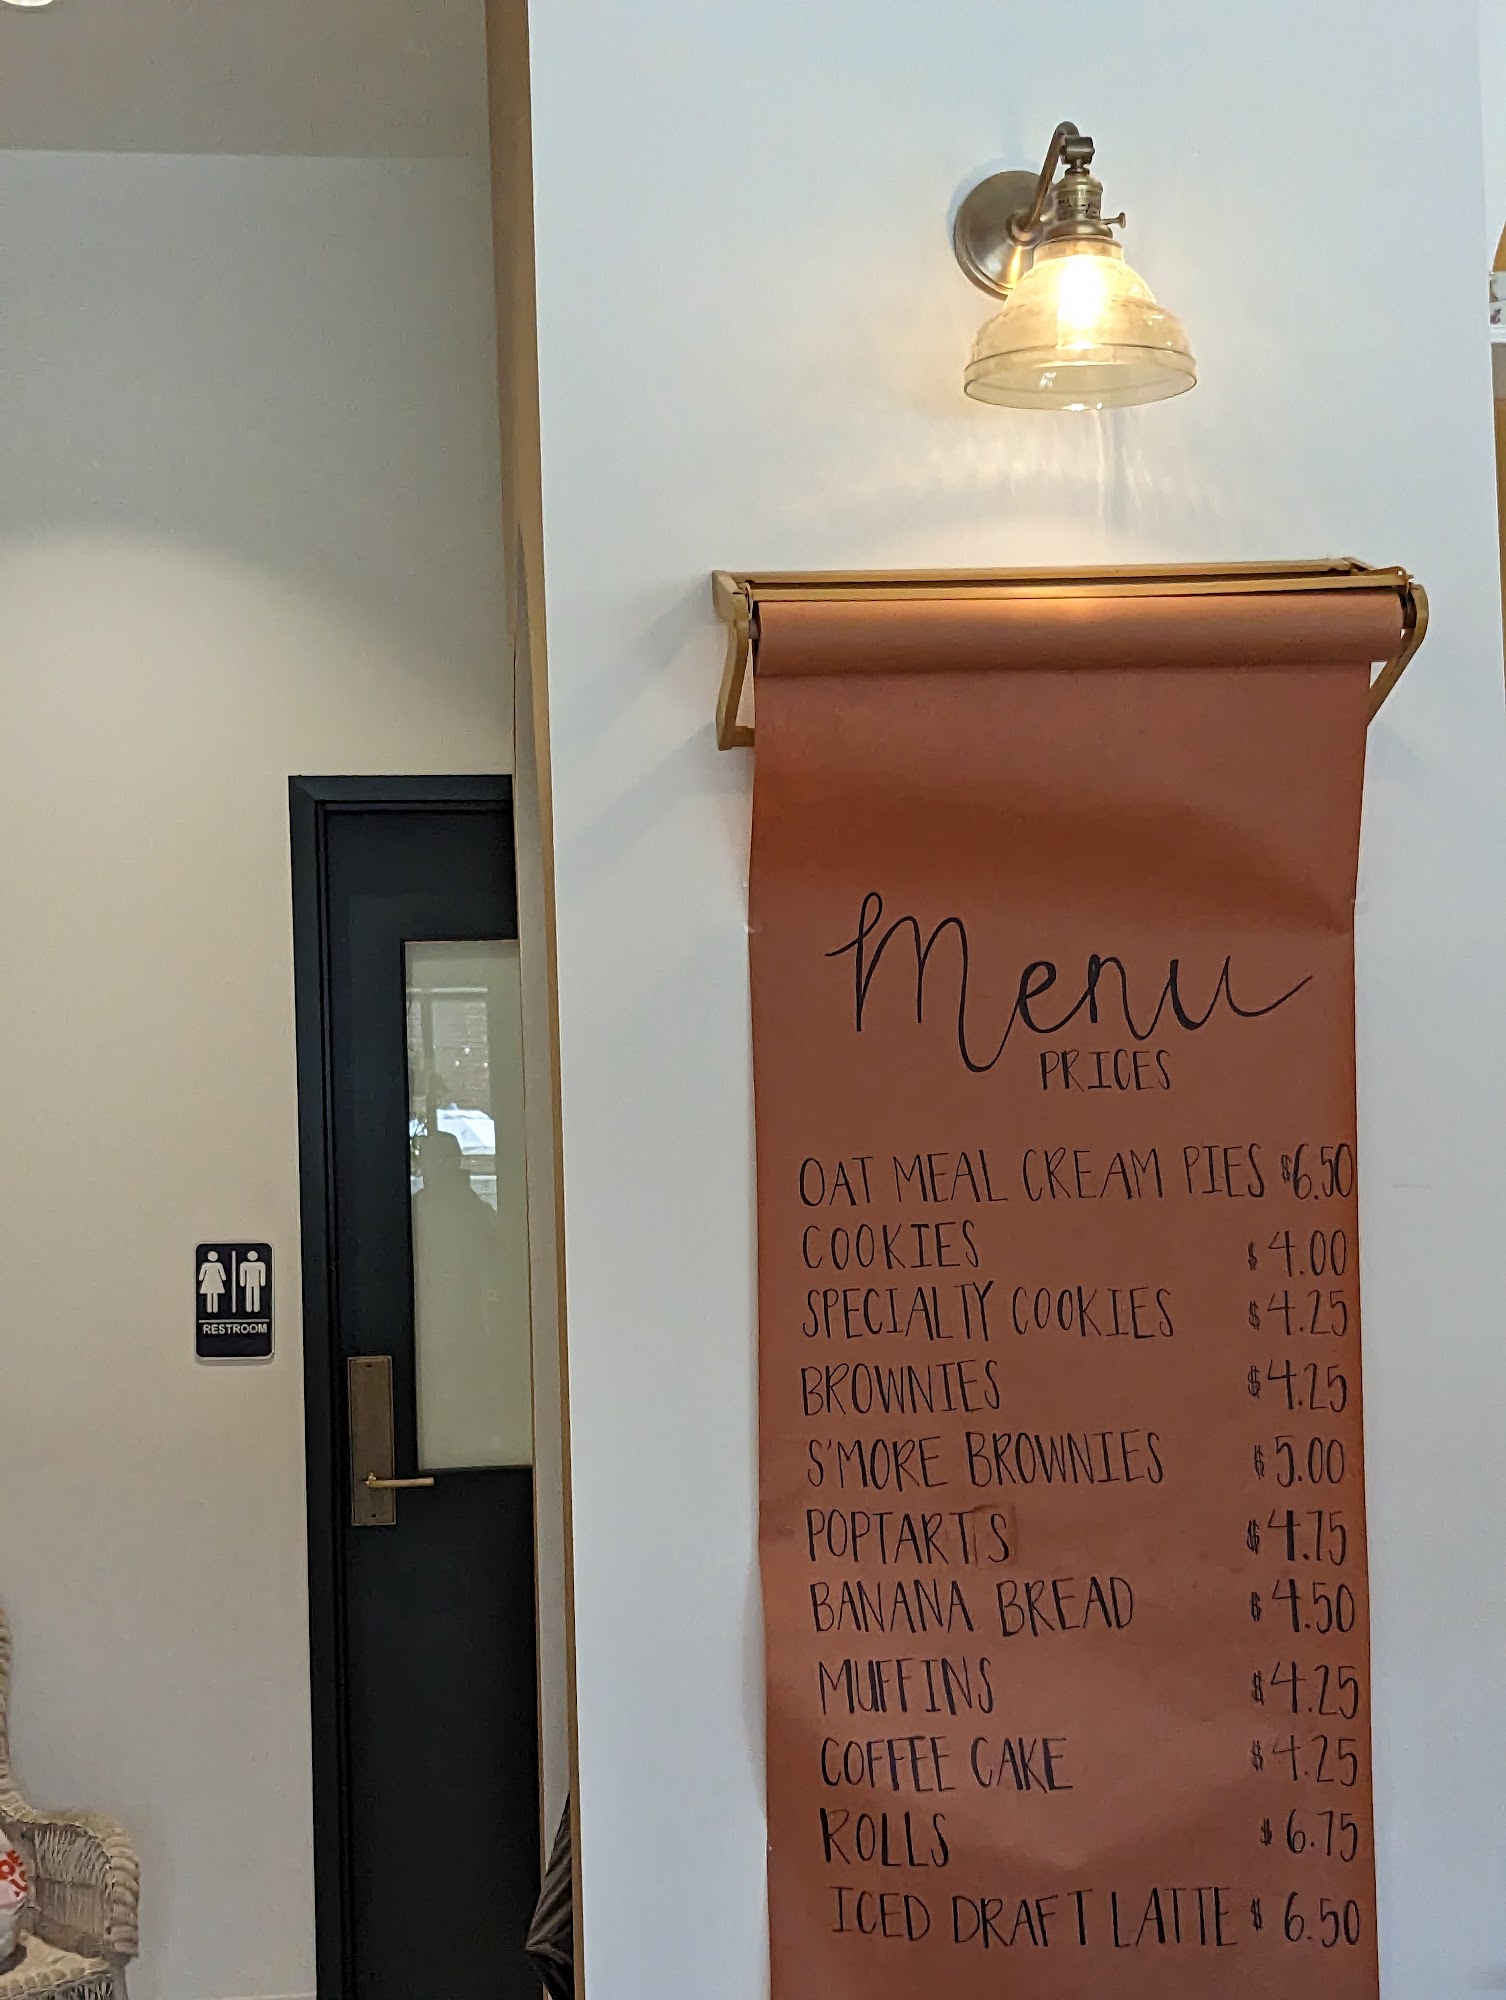 Menu
PRICES
OAT MEAL CREAM PIES $6.50
COOKIES $4.00
SPECIALTY COOKIES $4.25
BROWNIES $4.25
S'MORE BROWNIES $5.00
POPTARTS $4.75
BANANA BREAD $4.50
MUFFINS $4.25
COFFEE CAKE $4.25
ROLLS $6.75
ICED DRAFT LATTE $6.50
RESTROOM